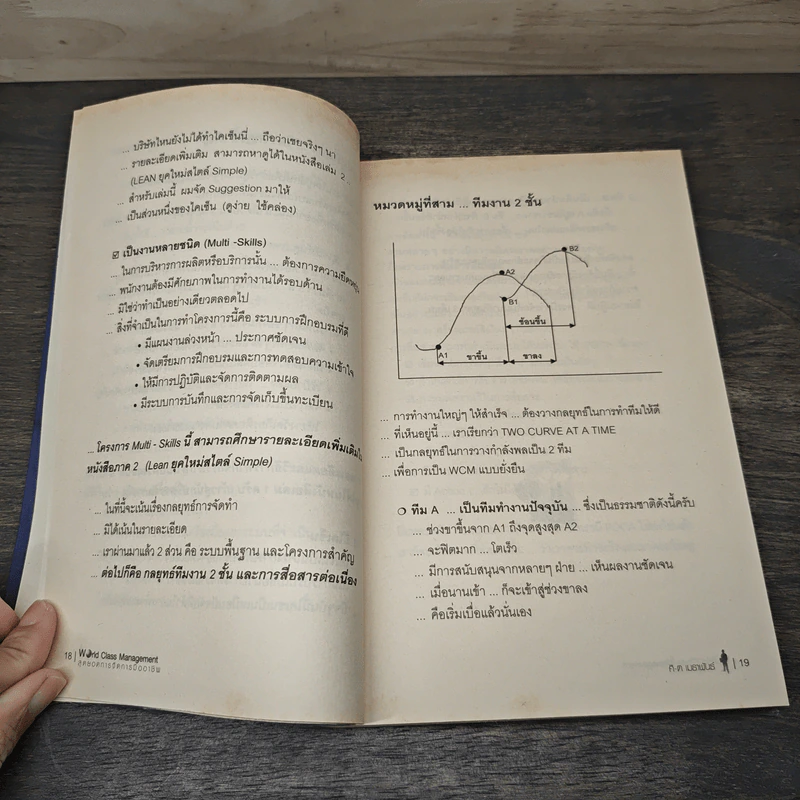 ... บริษัทไหนยังไม่ได้ทำไคเซ็นนี่ ... ถือว่าเชยจริงๆ นา
... รายละเอียดเพิ่มเติม สามารถหาดูได้ในหนังสือเล่ม 2
(LEAN ยุคใหม่สไตล์ Simple)
... สำหรับเล่มนี้ ผมจัด Suggestion มาให้
... เป็นส่วนหนึ่งของไคเซ็น (ดูง่าย ใช้คล่อง)
☑ เป็นงานหลายชนิด (Multi -Skills)
... ในการบริหารการผลิตหรือบริการนั้น ... ต้องการความยืดหยุ่น
... พนักงานต้องมีศักยภาพในการทำงานได้รอบด้าน
... มิใช่ว่าทำเป็นอย่างเดียวตลอดไป
... สิ่งที่จำเป็นในการทำโครงการนี้คือ ระบบการฝึกอบรมที่ดี
• มีแผนงานล่วงหน้า ... ประกาศชัดเจน
• จัดเตรียมการฝึกอบรมและการทดสอบความเข้าใจ
• ให้มีการปฏิบัติและจัดการติดตามผล
• มีระบบการบันทึกและการจัดเก็บขึ้นทะเบียน
... โครงการ Multi - Skills นี้ สามารถศึกษารายละเอียดเพิ่มเติมใน
หนังสือภาค 2 (Lean ยุคใหม่สไตล์ Simple)
... ในที่นี้จะเน้นเรื่องกลยุทธ์การจัดทำ
... มิได้เน้นในรายละเอียด
... เราผ่านมาแล้ว 2 ส่วน คือ ระบบพื้นฐาน และโครงการสำคัญ
... ต่อไปก็คือ กลยุทธ์ทีมงาน 2 ชั้น และการสื่อสารต่อเนื่อง
18 | World Class Management
สุดยอดการจัดการมืออาชีพ
หมวดหมู่ที่สาม ... ทีมงาน 2 ชั้น
B2
A2
B1
ซ้อนขึ้น
A1
ขาขึ้น
ขาลง
... การทำงานใหญ่ๆ ให้สำเร็จ ... ต้องวางกลยุทธ์ในการทำทีมให้ดี
... ที่เห็นอยู่นี้ ... เราเรียกว่า TWO CURVE AT A TIME
... เป็นกลยุทธ์ในการวางกำลังพลเป็น 2 ทีม
... เพื่อการเป็น WCM แบบยั่งยืน
❍ ทีม A ... เป็นทีมทำงานปัจจุบัน ... ซึ่งเป็นธรรมชาติดังนี้ครับ
... ช่วงขาขึ้นจาก A1 ถึงจุดสูงสุด A2
... จะฟิตมาก ... โตเร็ว
... มีการสนับสนุนจากหลายๆ ฝ่าย ... เห็นผลงานชัดเจน
... เมื่อนานเข้า ... ก็จะเข้าสู่ช่วงขาลง
... คือเริ่มเบื่อแล้วนั่นเอง
ศ.ต เมธาพันธ์ | 19